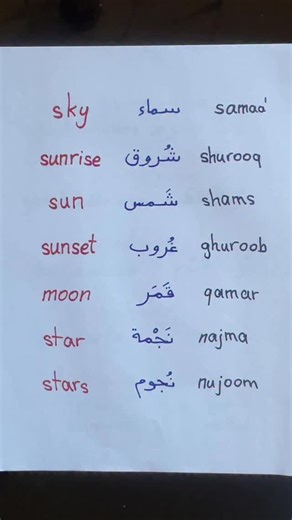 sky سماء samaa'
sunrise شُروق shurooq
sun شَمس shams
sunset غُروب ghuroob
moon قَمَر qamar
star نَجْمة najma
stars نُجوم nujoom